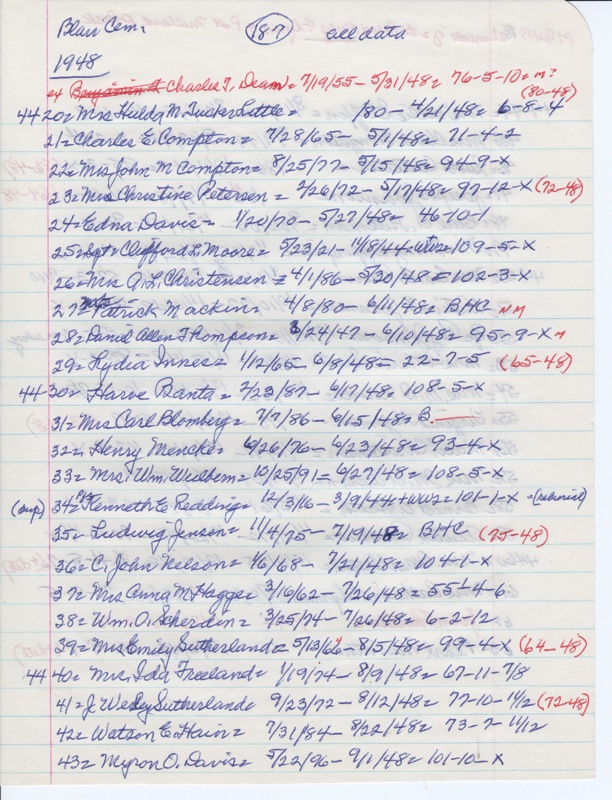 Blair Cem. (187) all data
1948
ex Benjamin F Charles T. Deam = 7/19/55 - 5/31/48 = 76-5-10 = m?
4420 = Mrs Hulda M. Tucker Little = /80 - 4/21/48 = 6-8-4 (80-48)
21 = Charles E. Compton = 7/28/65 - 5/1/48 = 71-4-2
22 = Mrs John M Compton = 8/25/77 - 5/15/48 = 94-9-x
23 = Mrs Christine Petersen = 2/26/72 - 5/17/48 = 97-12-x (72-48)
24 = Edna Davis = 1/20/70 - 5/27/48 = 46-10-1
25 = Sgt = Clifford L. Moore = 5/23/21 - 11/18/44 = 109-5-x
26 = Mrs A. L. Christensen = 4/1/86 - 5/30/48 = 102-3-x
27 = Patrick Mackin = 4/8/80 - 6/11/48 = BHC NM
28 = Daniel Allen Thompson = 3/24/47 - 6/10/48 = 95-9-x M
29 = Lydia Innes = 1/12/65 - 6/8/48 = 22-7-5 (65-48)
44-30 = Harve Banta = 2/23/87 - 6/17/48 = 108-5-x
31 = Mrs Carl Blomberg = 7/7/86 - 6/15/48 = B.
32 = Henry Mencke = 6/26/76 - 6/23/48 = 93-4-x
33 = Mrs. Wm. Wulbern = 10/25/91 = 6/27/48 = 108-5-x
(dup) 34 = Kenneth E Redding = 12/3/16 - 3/9/44 = + WW2 = 101-1-x = (reburial)
35 = Ludwig Jensen = 11/4/75 - 7/19/48 = BHC (75-48)
36 = C. John Nelson = 1/6/68 - 7/21/48 = 104-1-x
37 = Mrs Anna M. Hagge = 3/16/62 - 7/26/48 = 55-4-6
38 = Wm. O. Scherdin = 3/25/74 - 7/26/48 = 6-2-12
39 = Mrs Emily Sutherland = 5/13/64 - 8/5/48 = 99-4-x (64-48)
44 40 = Mrs. Ida Freeland = 1/19/74 - 8/9/48 = 67-11-7/8
41 = J. Wesley Sutherland = 9/23/72 - 8/12/48 = 77-10-11/2 (72-48)
42 = Watson E. Hain = 7/31/84 - 8/22/48 = 73-7-11/12
43 = Myron O. Davis = 5/22/96 - 9/1/48 = 101-10-x